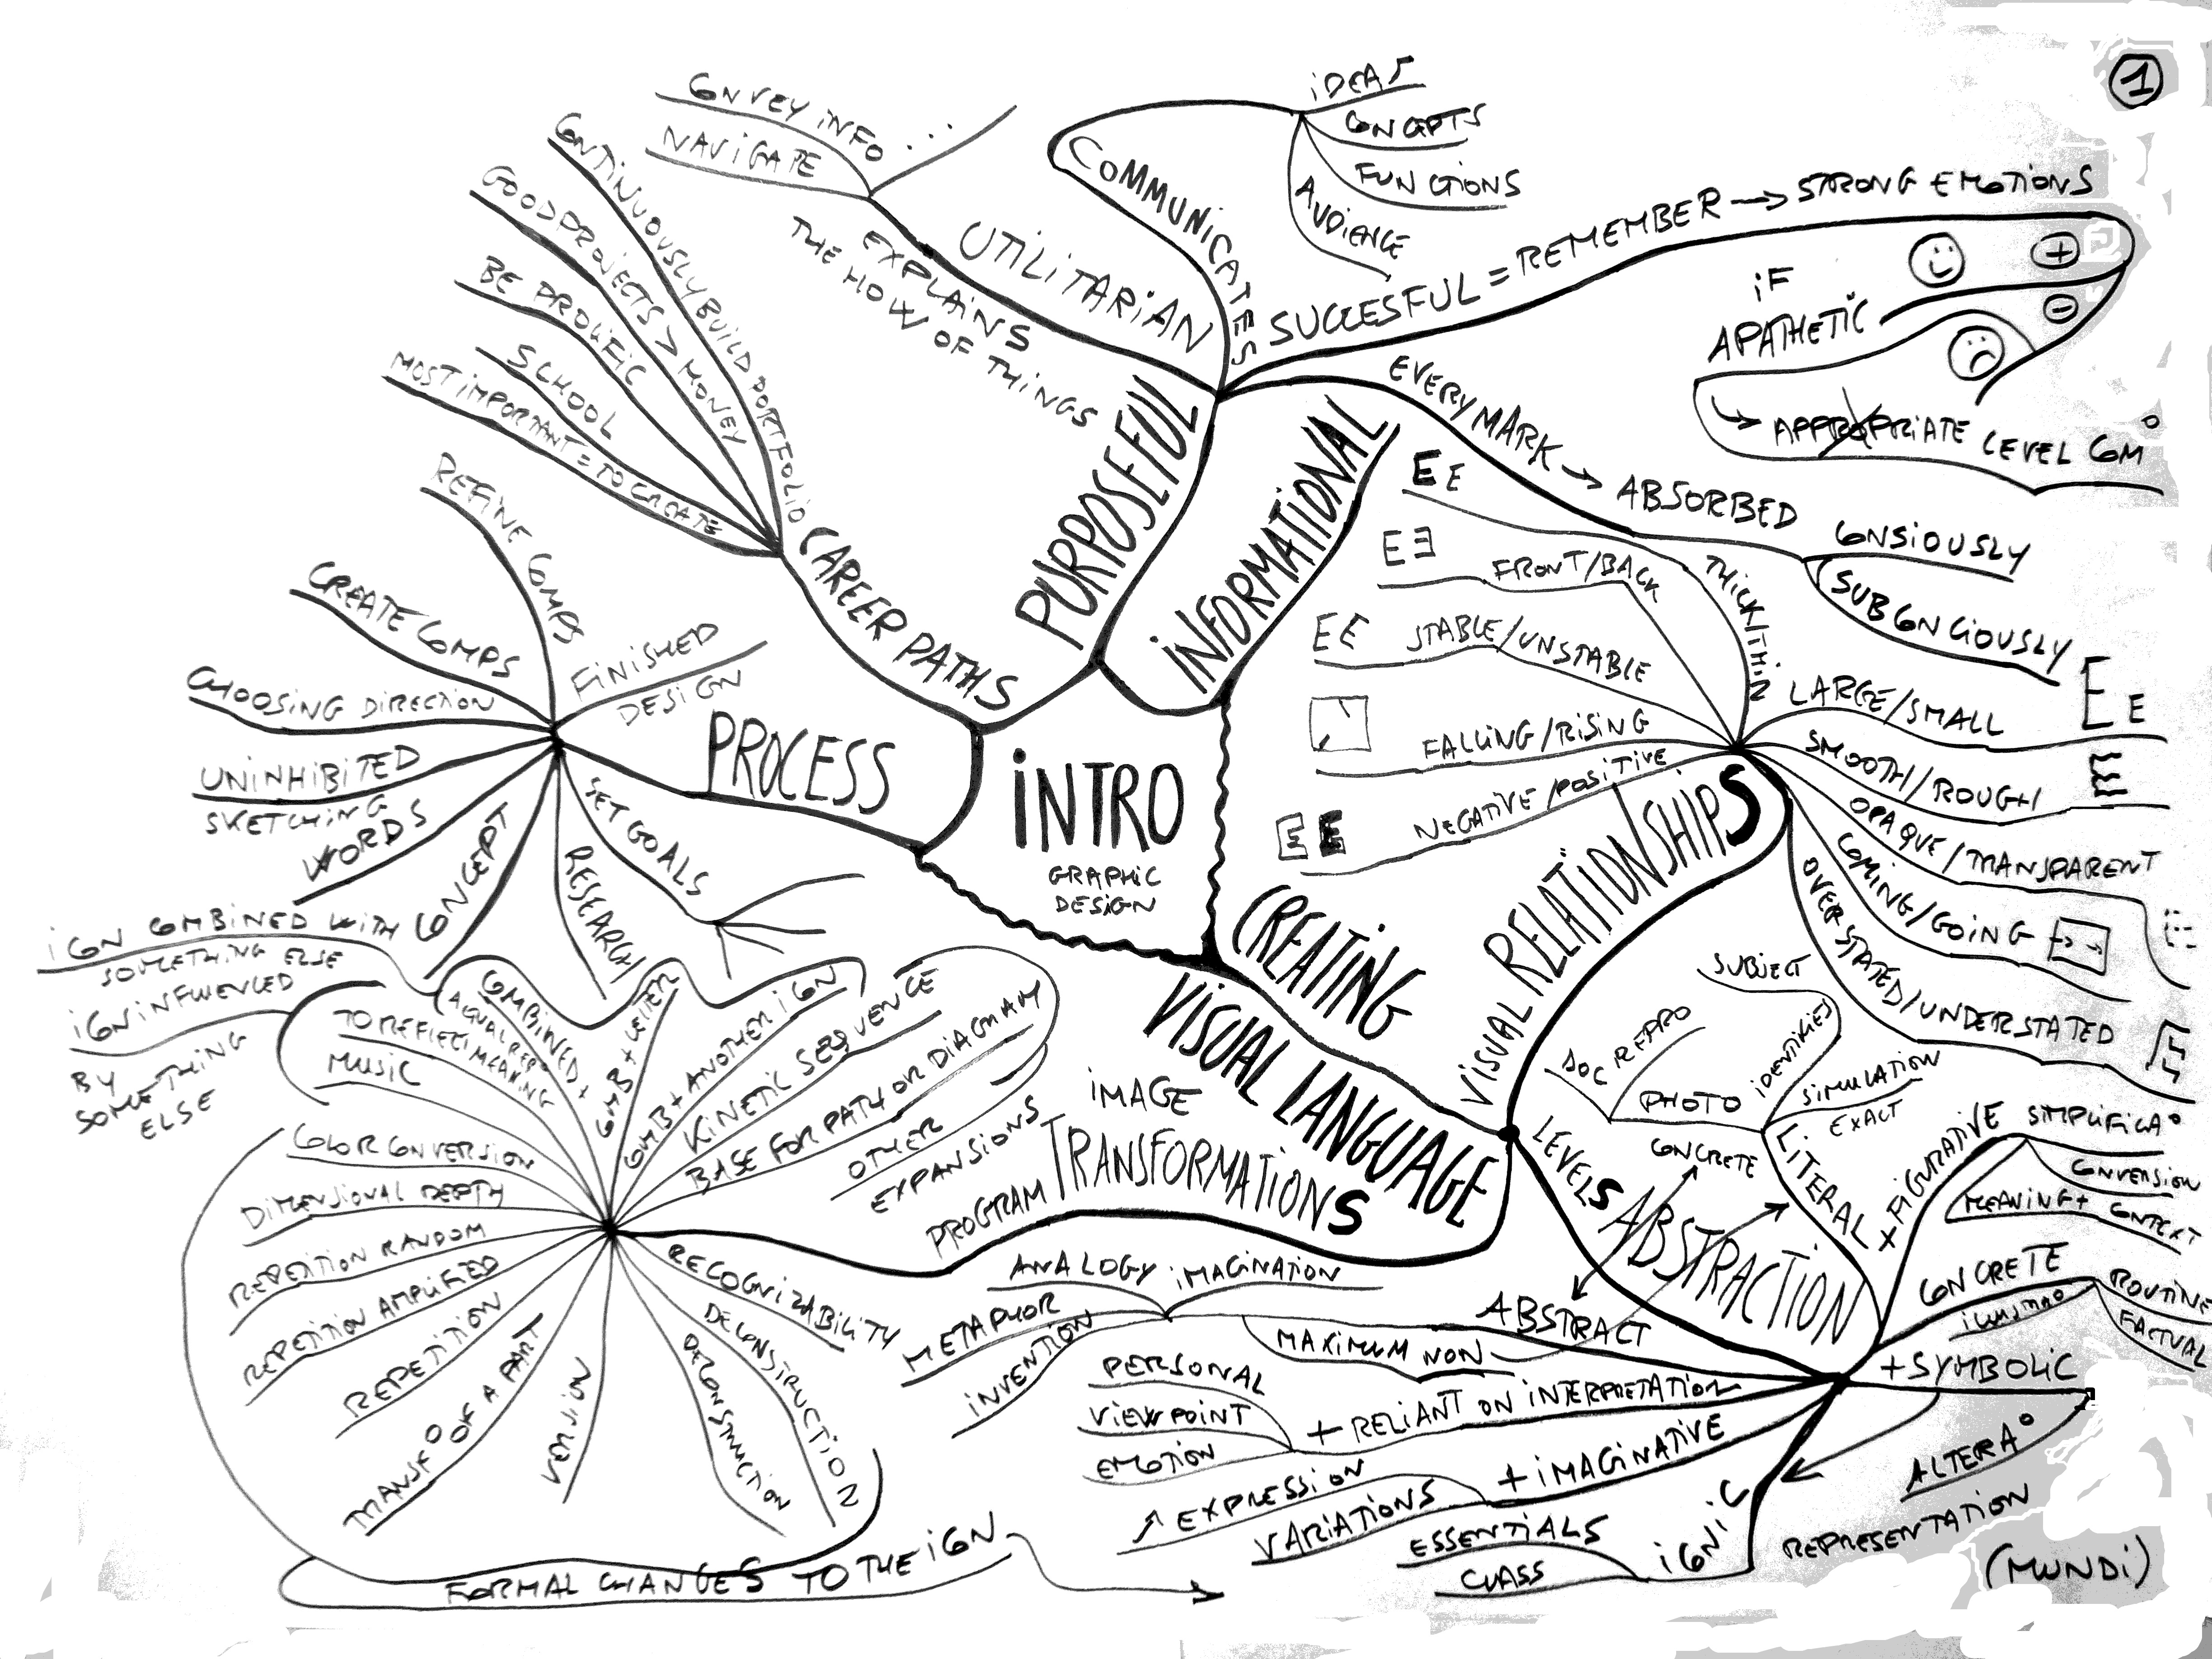 1
INTRO
GRAPHIC
DESIGN
PURPOSEFUL
UTILITARIAN
EXPLAINS
THE HOW OF THINGS
CONVEY INFO
NAVIGATE
...
COMMUNICATES
IDEAS
CONCEPTS
FUNCTIONS
AUDIENCE
SUCCESFUL = REMEMBER → STRONG EMOTIONS
+
-
IF
APATHETIC
APPROPRIATE LEVEL COM°
EVERY MARK → ABSORBED
CONSIOUSLY
SUBCONCIOUSLY
INFORMATIONAL
CREATING
VISUAL LANGUAGE
VISUAL RELATIONSHIPS
E E
THICK/THIN
E E
FRONT/BACK
E E
STABLE/UNSTABLE
FALLING/RISING
E E
NEGATIVE/POSITIVE
LARGE/SMALL
E E
SMOOTH/ROUGH
E
OPAQUE/TRANSPARENT
COMING/GOING
OVERSTATED/UNDERSTATED
LEVELS ABSTRACTION
CONCRETE
ABSTRACT
LITERAL
PHOTO
DOC REPRO
IDENTIFIES
SUBJECT
SIMULATION
EXACT
+ FIGURATIVE
SIMPLIFICA°
CONVERSION
MEANING + CONTEXT
CONCRETE
ILLUSTRA°
ROUTINE
FACTUAL
+ SYMBOLIC
ALTERA°
REPRESENTATION
ICONIC
ESSENTIALS
CLASS
+ IMAGINATIVE
↑ EXPRESSION
VARIATIONS
+ RELIANT ON INTERPRETATION
PERSONAL
VIEWPOINT
EMOTION
MAXIMUM NON
ANALOGY IMAGINATION
METAPHOR
INVENTION
IMAGE
PROGRAM TRANSFORMATIONS
RECOGNIZABILITY
DECONSTRUCTION
DECONSTRUCTION
TRANSF° OF A PART
REPETITION
REPETITION AMPLIFIED
REPETITION RANDOM
DIMENSIONAL DEPTH
COLOR CONVERSION
FORMAL CHANGES TO THE ICON
MUSIC
TO REFLECT MEANING
COMBINED +
COMB + LETTER
COMB + ANOTHER ICON
KINETIC SEQUENCE
BASE FOR PATH OR DIAGRAM
OTHER
EXPANSIONS
ICON COMBINED WITH
SOMETHING ELSE
ICON INFLUENCED
BY
SOMETHING
ELSE
PROCESS
SET GOALS
RESEARCH
CONCEPT
WORDS
UNINHIBITED
SKETCHING
CHOOSING DIRECTION
CREATE COMPS
REFINE COMPS
FINISHED
DESIGN
CAREER PATHS
MOST IMPORTANT = TO CREATE
SCHOOL
BE PROLIFIC
GOOD PROJECTS > MONEY
CONTINUOUSLY BUILD PORTFOLIO
(MUNDI)